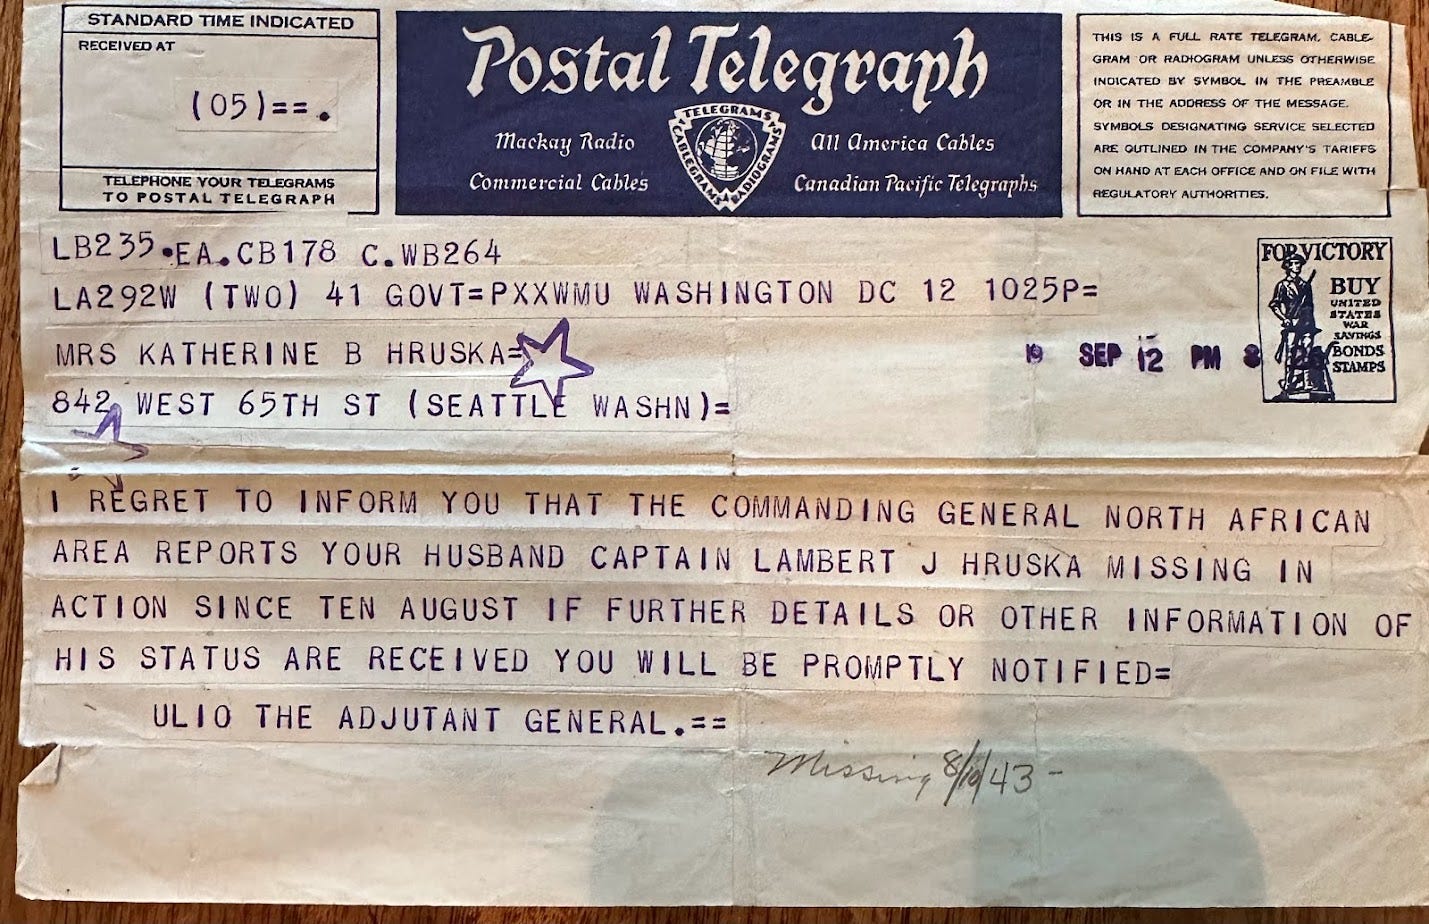 STANDARD TIME INDICATED
RECEIVED AT
(05)==.
TELEPHONE YOUR TELEGRAMS
TO POSTAL TELEGRAPH
Postal Telegraph
Mackay Radio
All America Cables
Commercial Cables
Canadian Pacific Telegraphs
TELEGRAMS
CABLEGRAMS
RADIOGRAMS
THIS IS A FULL RATE TELEGRAM, CABLE-
GRAM OR RADIOGRAM UNLESS OTHERWISE
INDICATED BY SYMBOL IN THE PREAMBLE
OR IN THE ADDRESS OF THE MESSAGE.
SYMBOLS DESIGNATING SERVICE SELECTED
ARE OUTLINED IN THE COMPANY'S TARIFFS
ON HAND AT EACH OFFICE AND ON FILE WITH
REGULATORY AUTHORITIES.
LB235.EA.CB178 C.WB264
LA292W (TWO) 41 GOVT=PXXWMU WASHINGTON DC 12 1025P=
MRS KATHERINE B HRUSKA=
19 SEP 12 PM 8
842 WEST 65TH ST (SEATTLE WASHN)=
FOR VICTORY
BUY
UNITED
STATES
WAR
SAVINGS
BONDS
STAMPS
I REGRET TO INFORM YOU THAT THE COMMANDING GENERAL NORTH AFRICAN
AREA REPORTS YOUR HUSBAND CAPTAIN LAMBERT J HRUSKA MISSING IN
ACTION SINCE TEN AUGUST IF FURTHER DETAILS OR OTHER INFORMATION OF
HIS STATUS ARE RECEIVED YOU WILL BE PROMPTLY NOTIFIED=
ULIO THE ADJUTANT GENERAL.==
Missing 8/10/43-